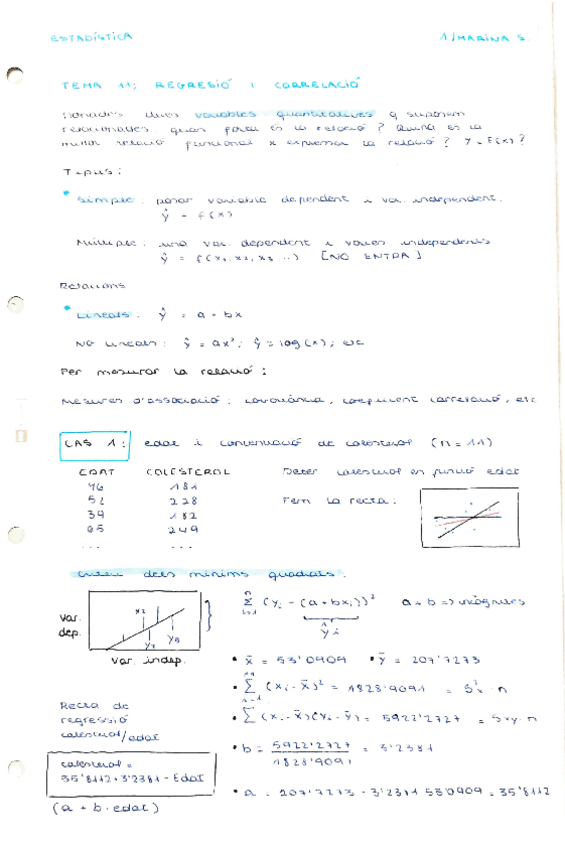 ESTADÍSTICA
1/MARINA S.
TEMA 11: REGRESIÓ I CORRELACIÓ
dues variables quantitatives q suposem
relacionades quan forta és la relació? Quina és la
millor relació funcional x expressar la relació? Y = F(X)?
Tipus:
• Simple: variable dependent i var. independent.
ŷ = f(x)
Múltiple: una var. dependent i vàries independents
ŷ = f(x₁, x₂, x₃ ...) [NO ENTRA]
Relacions
• Lineals: ŷ = a + bx
No lineals: ŷ = ax²; ŷ = log(x); etc
Per mesurar la relació:
Mesures d'associació: covariància, coeficient correlació, etc
CAS 1: edat i concentració de colesterol (n = 11)
EDAT COLESTEROL
46 181
52 228
39 182
65 249
... ...
colesterol en funció edat
Fem la recta:
Criteri dels mínims quadrats:
var. dep.
var. indep.
Σ (yᵢ - (a + bxᵢ))² a + b => incògnites
ŷᵢ
• x̄ = 53'0909 • ȳ = 207'7273
• Σ (xᵢ - x̄)² = 1828'9091 = S²ₓ · n
• Σ (xᵢ - x̄)(yᵢ - ȳ) = 5922'2727 = Sxy · n
• b = 5922'2727 / 1828'9091 = 3'2381
• a = 207'7273 - 3'2381 · 53'0909 = 35'8112
Recta de
regressió
colesterol/edat
colesterol =
35'8112 + 3'2381 · Edat
(a + b · edat)